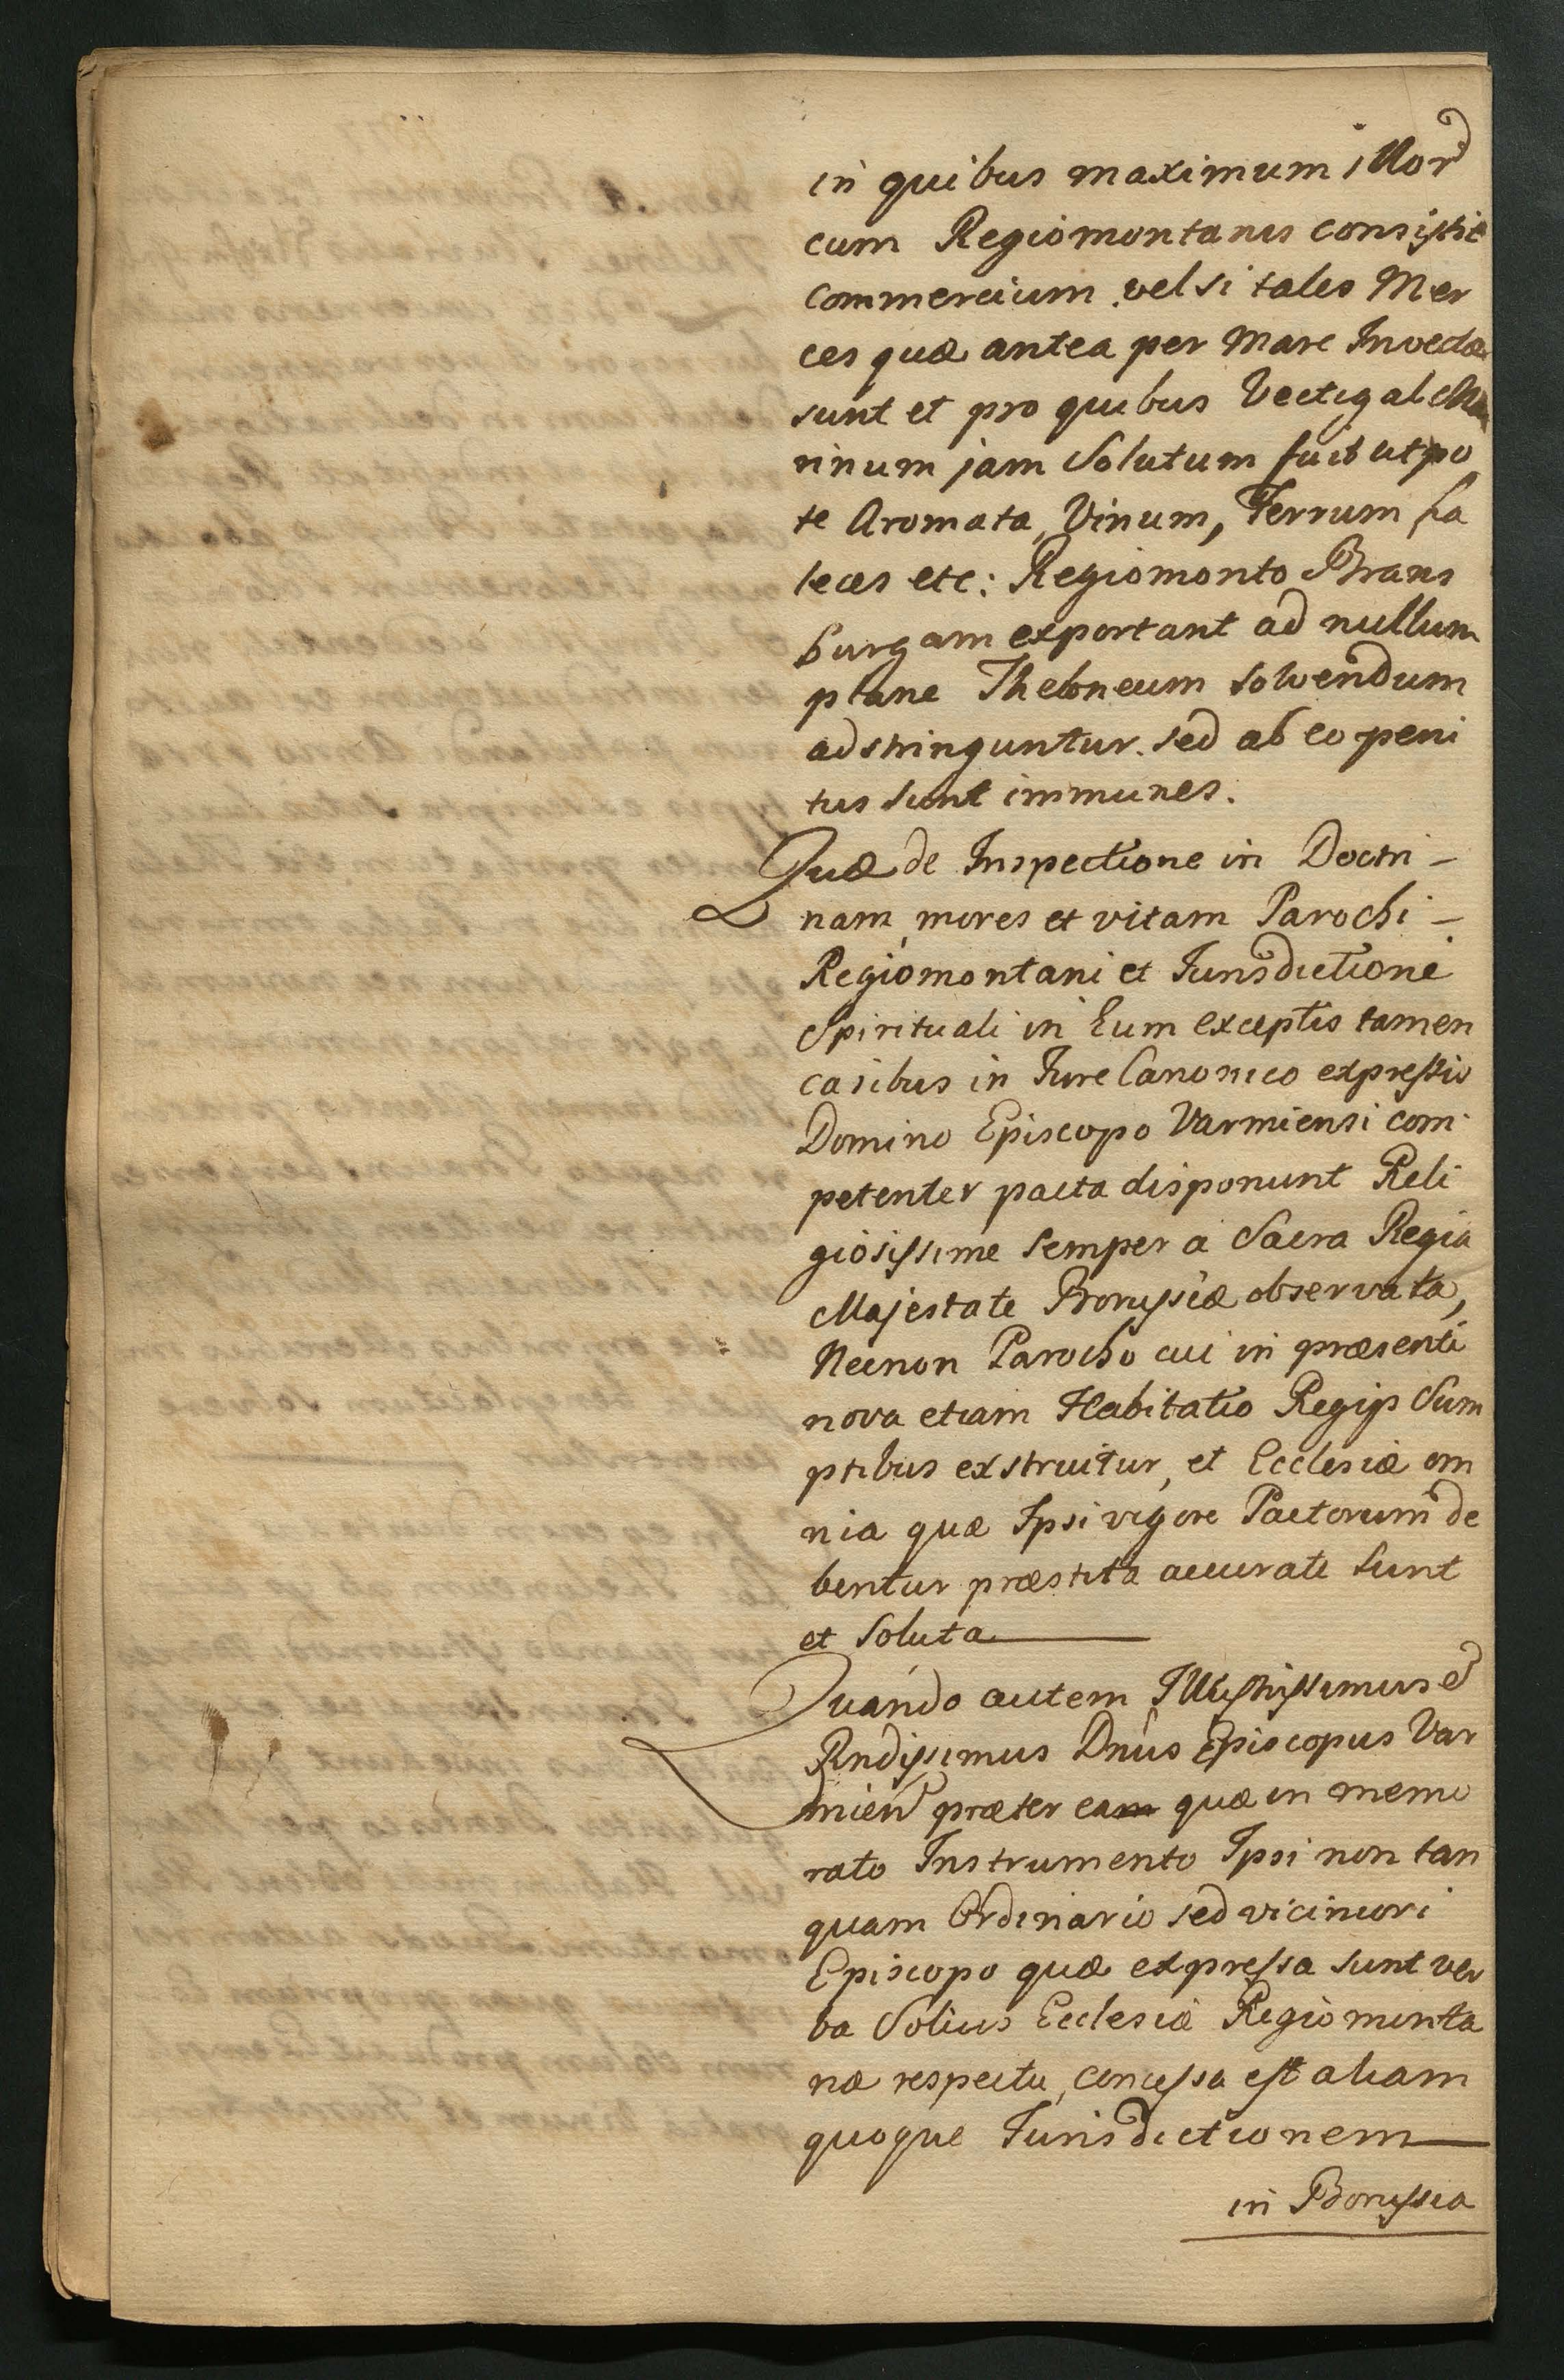 in quibus maximum illor
cum Regiomontanis consistit
commercium vel si tales Mer
ces quæ antea per Mare Invectæ
sunt et pro quibus Vectigal Ma
rinum jam Solutum fuit utpo
te Aromata, Vinum, Ferrum ha
leces etc: Regiomonto Brans
burgam exportant ad nullum
plane Theloneum solvendum
adstringuntur. sed ab eo peni
tus sunt immunes.
Quæ de Inspectione in Doctri-
nam, mores et vitam Parochi-
Regiomontani et Jurisdictione
Spirituali in Eum exceptis tamen
casibus in Jure Canonico expressis
Domino Episcopo Varmiensi com
petenter pacta disponunt Reli
giosissime semper a Sacra Regia
Majestate Borussiæ observata,
Necnon Parocho cui in præsenti
nova etiam Habitatio Regijs Sum
ptibus exstruitur, et Ecclesiæ om
nia quæ Ipsi vigore Pactorum de
bentur præstita accurate sunt
et Soluta
Quando autem Illustrissimus et
Rndissimus Dnus Episcopus Var
mien præter ea quæ in memo
rato Instrumento Ipsi non tan
quam Ordinario sed viciniori
Episcopo quæ expressa sunt ver
ba Solius Ecclesiæ Regiomonta
næ respectu, concessa est aliam
quoque Jurisdictionem
in Borussia